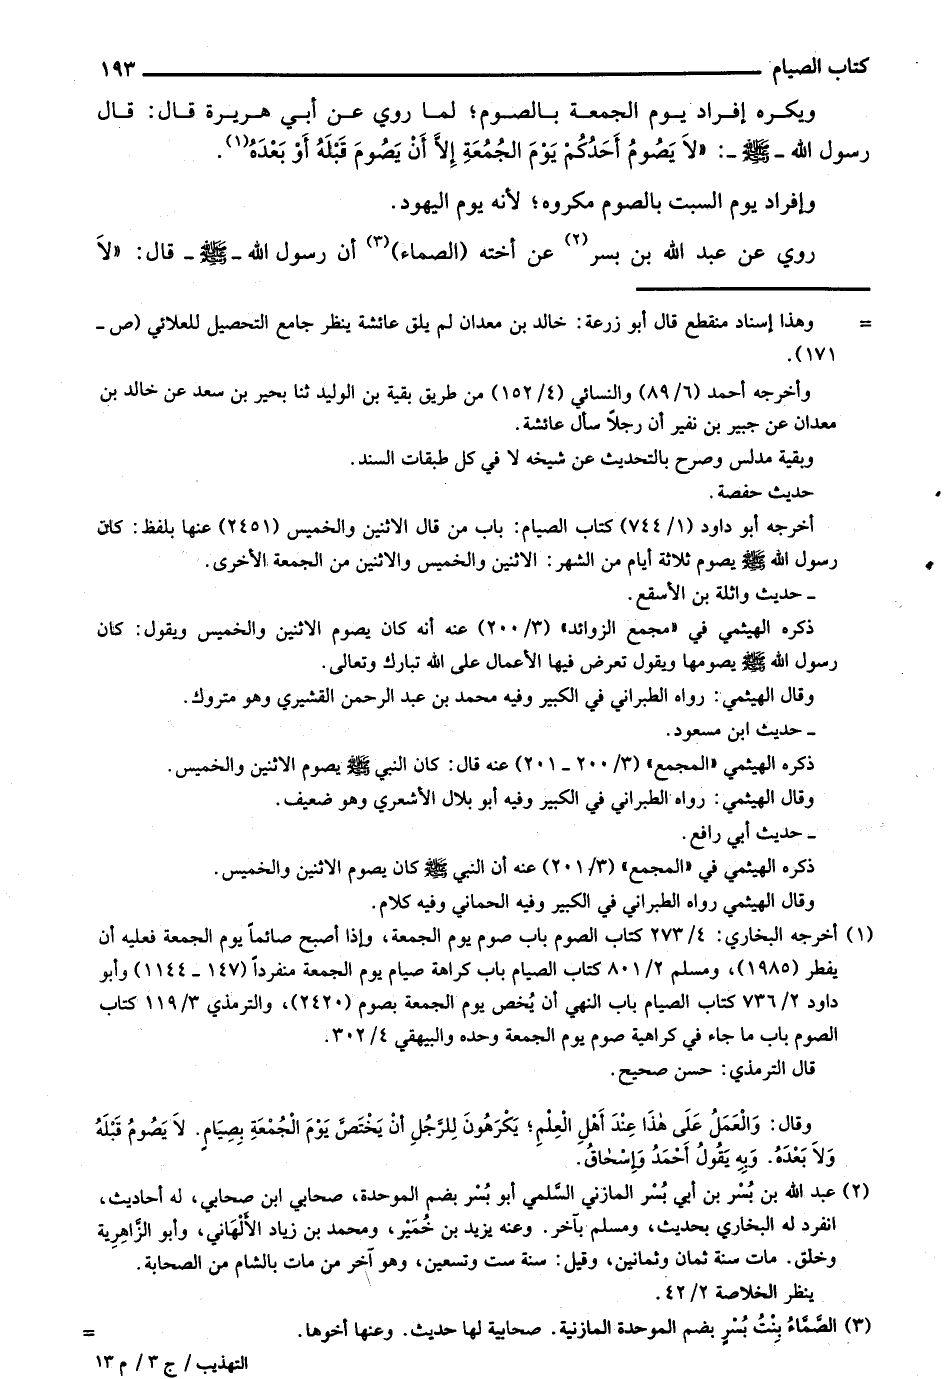 كتاب الصيام ١٩٣
ويكره إفراد يوم الجمعة بالصوم؛ لما روي عن أبي هريرة قال: قال
رسول الله ـ ﷺ ـ: «لاَ يَصُومُ أَحَدُكُمْ يَوْمَ الجُمُعَةِ إِلاَّ أَنْ يَصُومَ قَبْلَهُ أَوْ بَعْدَهُ(١).
وإفراد يوم السبت بالصوم مكروه؛ لأنه يوم اليهود.
روي عن عبد الله بن بسر(٢) عن أخته (الصماء)(٣) أن رسول الله ـ ﷺ ـ قال: «لاَ
= وهذا إسناد منقطع قال أبو زرعة: خالد بن معدان لم يلق عائشة ينظر جامع التحصيل للعلائي (ص ـ
١٧١).
وأخرجه أحمد (٨٩/٦) والنسائي (١٥٢/٤) من طريق بقية بن الوليد ثنا بحير بن سعد عن خالد بن
معدان عن جبير بن نفير أن رجلاً سأل عائشة.
وبقية مدلس وصرح بالتحديث عن شيخه لا في كل طبقات السند.
حديث حفصة.
أخرجه أبو داود (٧٤٤/١) كتاب الصيام: باب من قال الاثنين والخميس (٢٤٥١) عنها بلفظ: كان
رسول الله ﷺ يصوم ثلاثة أيام من الشهر: الاثنين والخميس والاثنين من الجمعة الأخرى.
ـ حديث واثلة بن الأسقع.
ذكره الهيثمي في «مجمع الزوائد» (٢٠٠/٣) عنه أنه كان يصوم الاثنين والخميس ويقول: كان
رسول الله ﷺ يصومها ويقول تعرض فيها الأعمال على الله تبارك وتعالى.
وقال الهيثمي: رواه الطبراني في الكبير وفيه محمد بن عبد الرحمن القشيري وهو متروك.
ـ حديث ابن مسعود.
ذكره الهيثمي «المجمع» (٢٠٠/٣ ـ ٢٠١) عنه قال: كان النبي ﷺ يصوم الاثنين والخميس.
وقال الهيثمي: رواه الطبراني في الكبير وفيه أبو بلال الأشعري وهو ضعيف.
ـ حديث أبي رافع.
ذكره الهيثمي في «المجمع» (٢٠١/٣) عنه أن النبي ﷺ كان يصوم الاثنين والخميس.
وقال الهيثمي رواه الطبراني في الكبير وفيه الحماني وفيه كلام.
(١) أخرجه البخاري: ٢٧٣/٤ كتاب الصوم باب صوم يوم الجمعة، وإذا أصبح صائماً يوم الجمعة فعليه أن
يفطر (١٩٨٥)، ومسلم ٨٠١/٢ كتاب الصيام باب كراهة صيام يوم الجمعة منفرداً (١٤٧ ـ ١١٤٤) وأبو
داود ٧٣٦/٢ كتاب الصيام باب النهي أن يُخص يوم الجمعة بصوم (٢٤٢٠)، والترمذي ١١٩/٣ كتاب
الصوم باب ما جاء في كراهية صوم يوم الجمعة وحده والبيهقي ٣٠٢/٤.
قال الترمذي: حسن صحيح.
وقال: وَالْعَمَلُ عَلَى هٰذَا عِنْدَ أَهْلِ الْعِلْمِ؛ يَكْرَهُونَ لِلرَّجُلِ أَنْ يَخْتَصَّ يَوْمَ الْجُمْعَةِ بِصِيَامٍ. لاَ يَصُومُ قَبْلَهُ
وَلاَ بَعْدَهُ. وَبِهِ يَقُولُ أَحْمَدُ وَإِسْحَاقُ.
(٢) عبد الله بن بُسْر بن أبي بُسْر المازني السَّلمي أبو بُسْر بضم الموحدة، صحابي ابن صحابي، له أحاديث،
انفرد له البخاري بحديث، ومسلم بآخر. وعنه يزيد بن خُمَيْر، ومحمد بن زياد الأَلْهَاني، وأبو الزَّاهِرِية
وخلق. مات سنة ثمان وثمانين، وقيل: سنة ست وتسعين، وهو آخر من مات بالشام من الصحابة.
ينظر الخلاصة ٤٢/٢.
(٣) الصَّمَّاءُ بِنْتُ بُسْرٍ بضم الموحدة المازنية. صحابية لها حديث. وعنها أخوها. =
التهذيب / ج ٣ / م ١٣